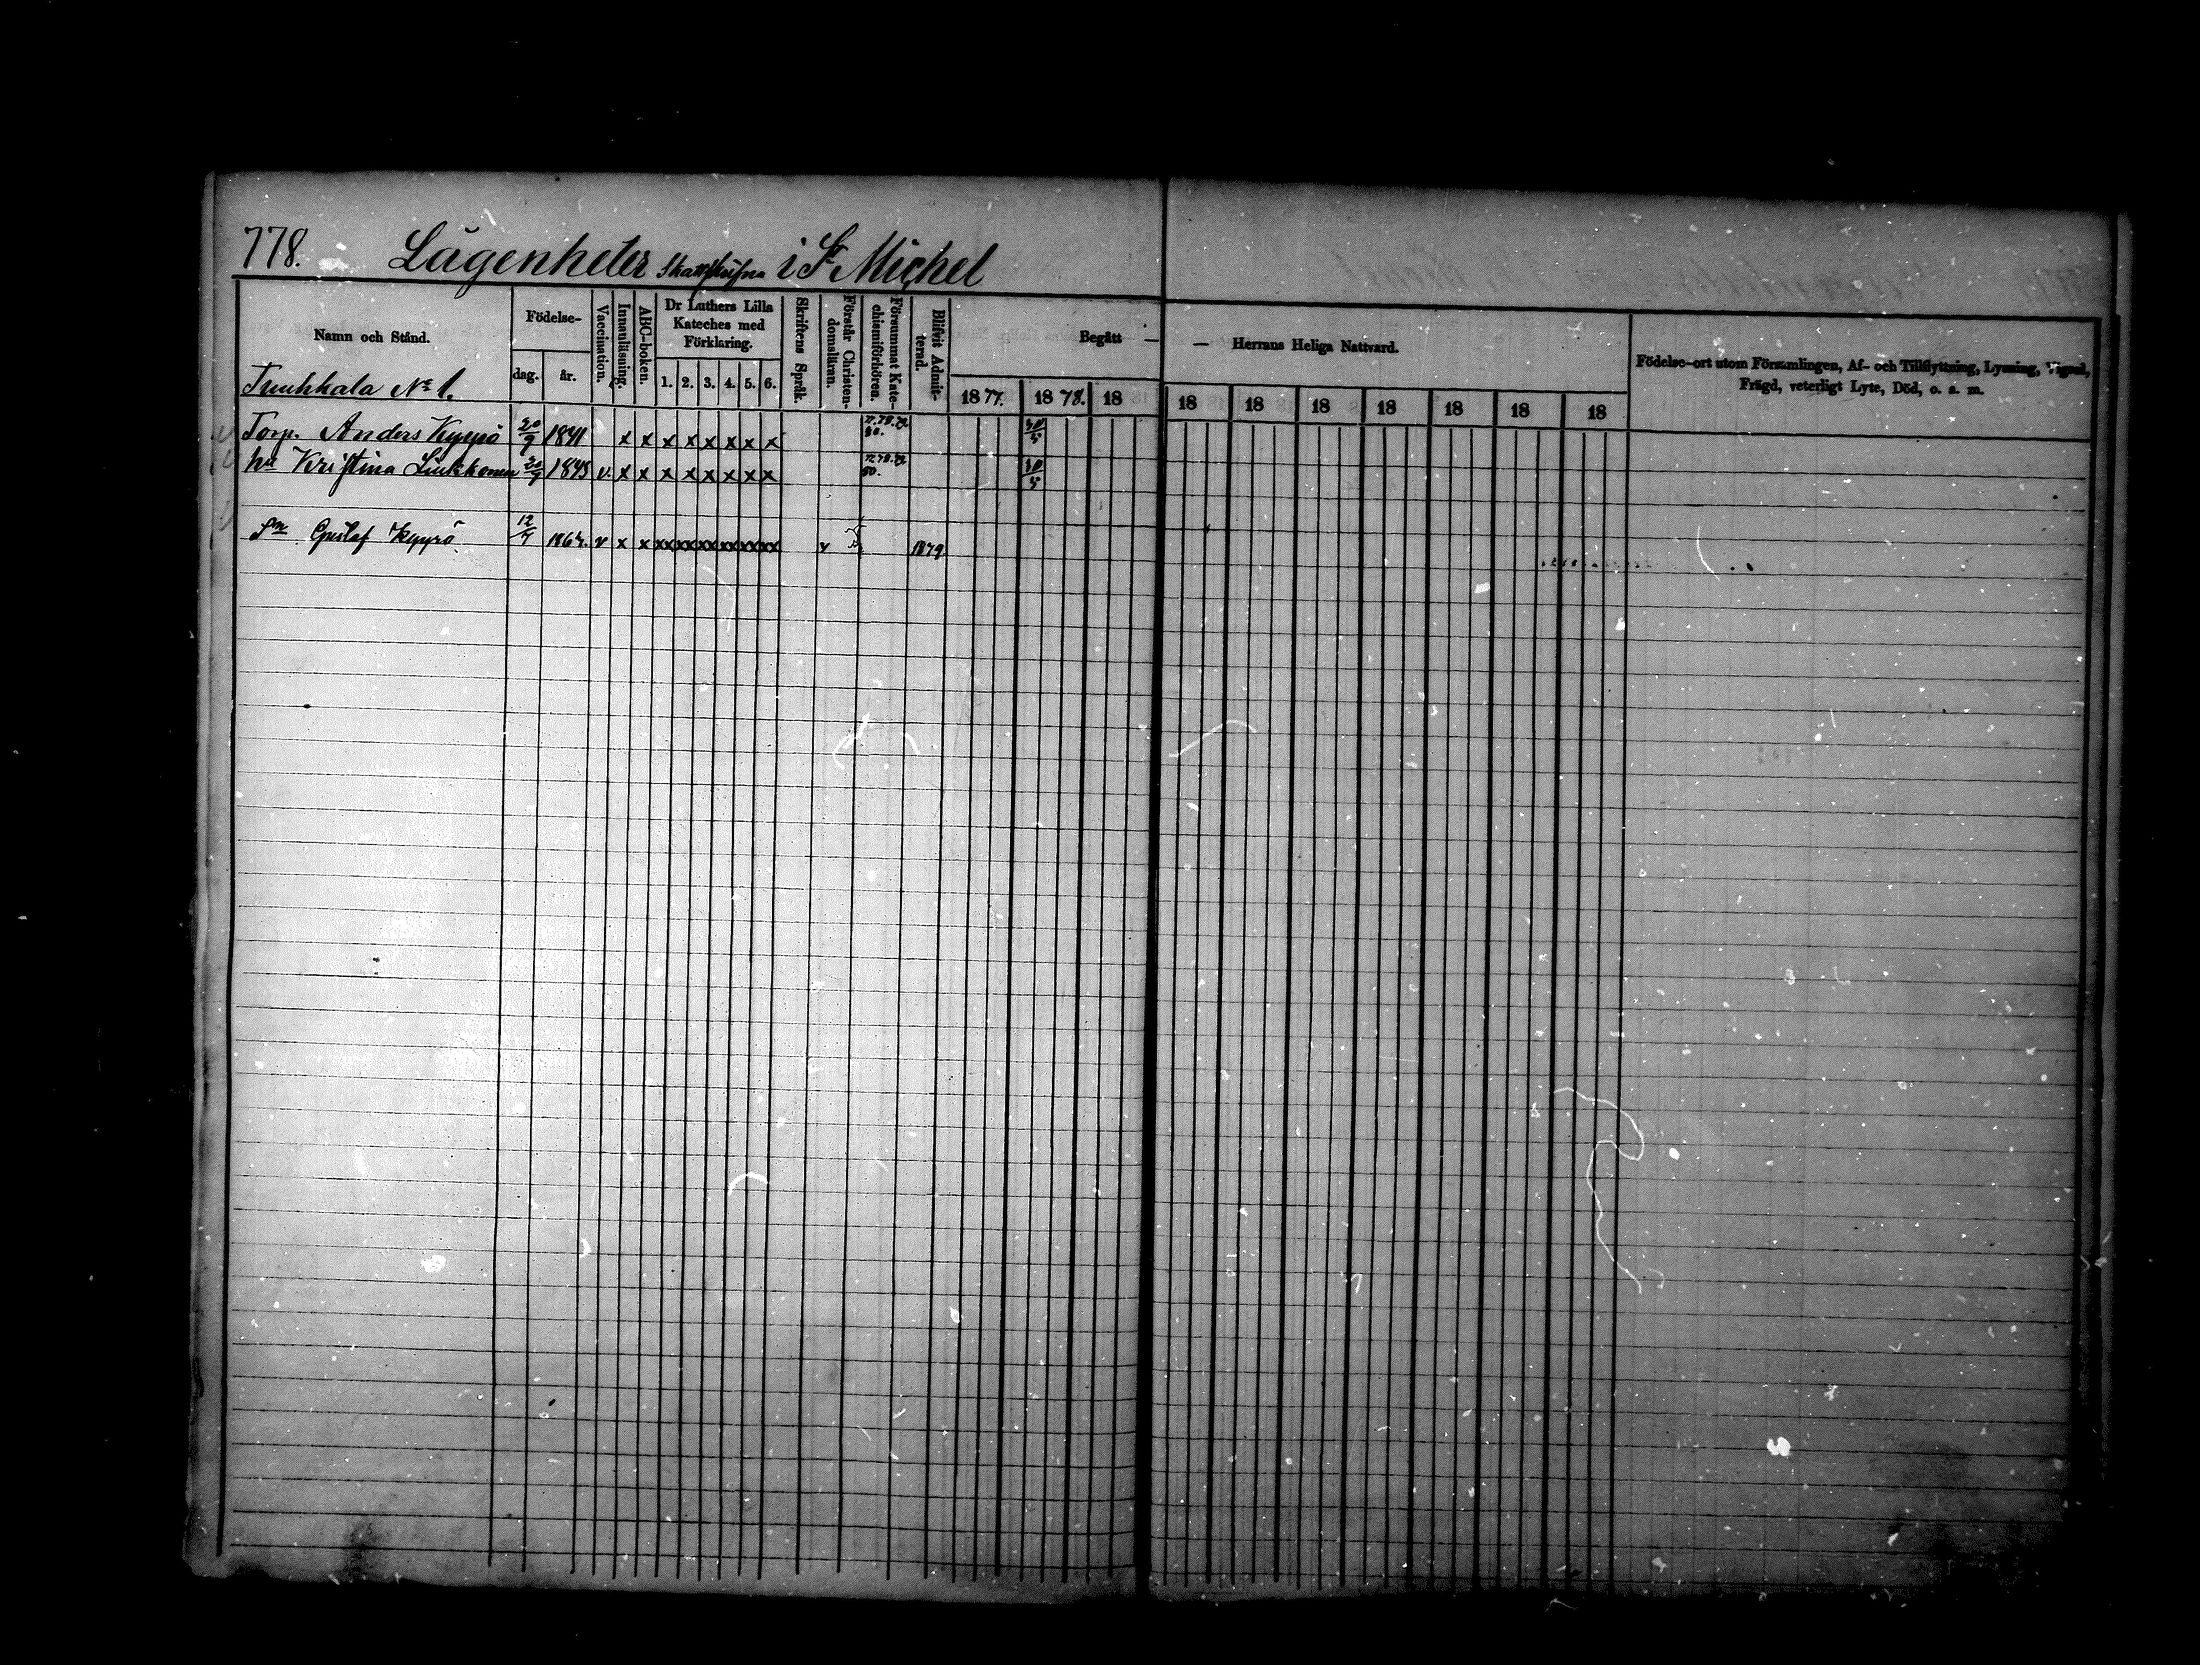 778. Lägenheter i St Michel
Namn och Stånd.
Födelse-
dag. år.
Vaccination.
Innanläsning.
ABC-boken.
Dr Luthers Lilla Kateches med Förklaring.
1. 2. 3. 4. 5. 6.
Skriftens Språk.
Förstår Christendomsläran.
Försummat Katechismiförhören.
Blifvit Admitterad.
Begått — — Herrans Heliga Nattvard.
1877. 1878. 18 18 18 18 18 18 18 18
Födelse-ort utom Församlingen, Af- och Tillflyttning, Lysning, Vigsel,
Frägd, veterligt Lyte, Död, o. s. m.
Tuukkala No 1.
Torp. Anders Kyyrö 20/9 1841 x x x x x x x x 77.78.79. 80. 30/5
hu Kristina Liukkonen 20/9 1845 v. x x x x x x x x 77.78.79. 80. 30/5
Sn Gustaf Kyyrö 12/7 1864. v x x xx xx xx xx xx xx v 1879